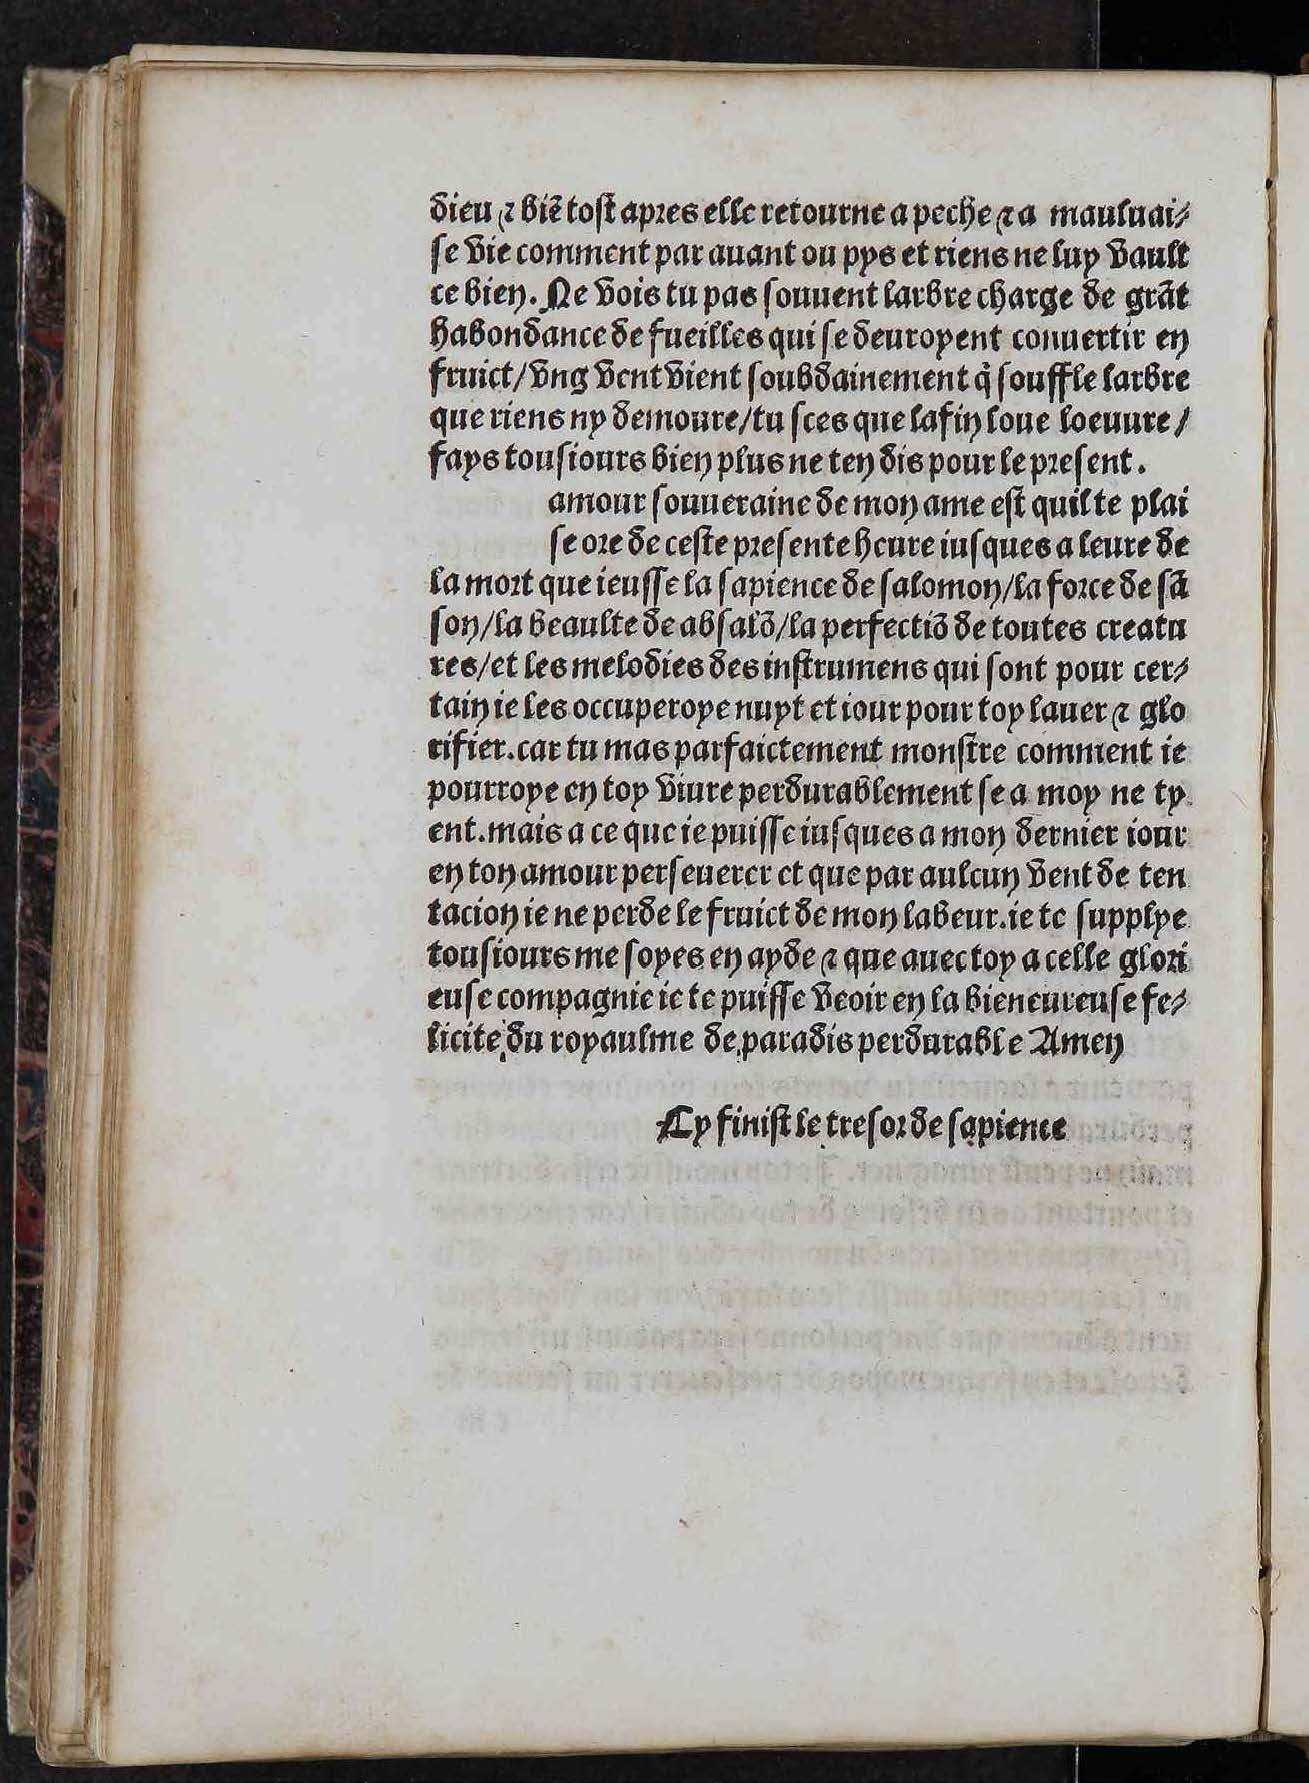 dieu ⁊ biē tost apres elle retourne a peche ⁊ a mauluai⸗
se vie comment par auant ou pys et riens ne luy vault
ce bien. Ne vois tu pas souuent larbre charge de grāt
habondance de fueilles qui se deuroyent conuertir en
fruict/vng vent vient soubdainement q̄ souffle larbre
que riens ny demoure/tu sces que la fin loue loeuure/
fays tousiours bien plus ne ten dis pour le present.
amour souueraine de mon ame est quil te plai
se ore de ceste presente heure iusques a leure de
la mort que ieusse la sapience de salomon/la force de sā
son/la beaulte de absalō/la perfectiō de toutes creatu
res/et les melodies des instrumens qui sont pour cer⸗
tain ie les occuperoye nuyt et iour pour toy lauer ⁊ glo
rifier. car tu mas parfaictement monstre comment ie
pourroye en toy viure perdurablement se a moy ne ty
ent. mais a ce que ie puisse iusques a mon dernier iour
en ton amour perseuerer et que par aulcun vent de ten
tacion ie ne perde le fruict de mon labeur. ie te supplye
tousiours me soyes en ayde ⁊ que auec toy a celle glori
euse compagnie ie te puisse veoir en la bieneureuse fe⸗
licite du royaulme de paradis perdurable Amen
Cy finist le tresor de sapience